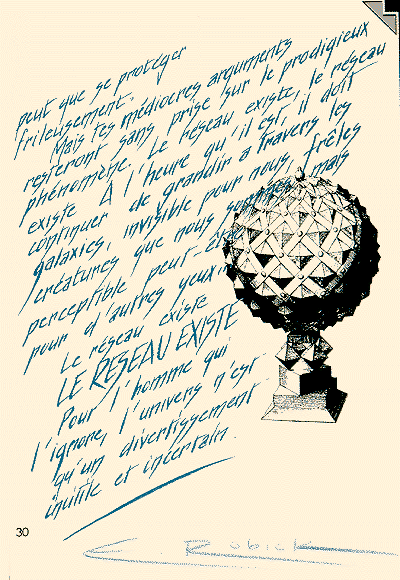 peut que se protéger
frileusement.
Mais tes médiocres arguments
resteront sans prise sur le prodigieux
phénomène. Le réseau existe, le réseau
existe. À l'heure qu'il est, il doit
continuer de grandir à travers les
galaxies, invisible pour nous, frêles
créatures que nous sommes, mais
perceptible peut-être
pour d'autres yeux...
Le réseau existe
LE RESEAU EXISTE
Pour l'homme qui
l'ignore, l'univers n'est
qu'un divertissement
inutile et incertain.
30
E. Robick